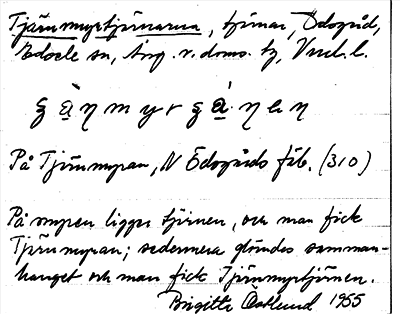 Tjärnmyrtjärnarna, tjärnar, Ödsgård,
Edsele sn, Ång. v. doms. tg, Vnrl. l.
På Tjärnmyran, N Ödsgårds fäb. (310)
På myren ligger tjärnen, och man fick
Tjärnmyran; sedermera glömdes samman-
hanget och man fick Tjärnmyrtjärnen.
Birgitta Östlund 1955